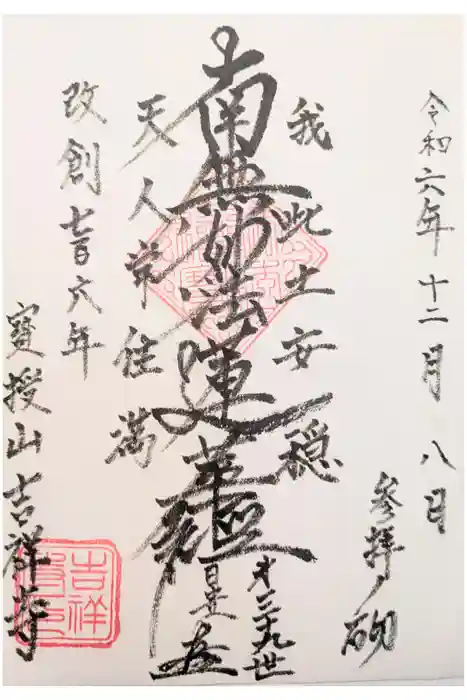 令和六年十二月八日
参拝砌
我此土安穏
南無妙法蓮華経
第三十九世
天人常住満
改創七百六年
寳授山吉祥寺
吉祥